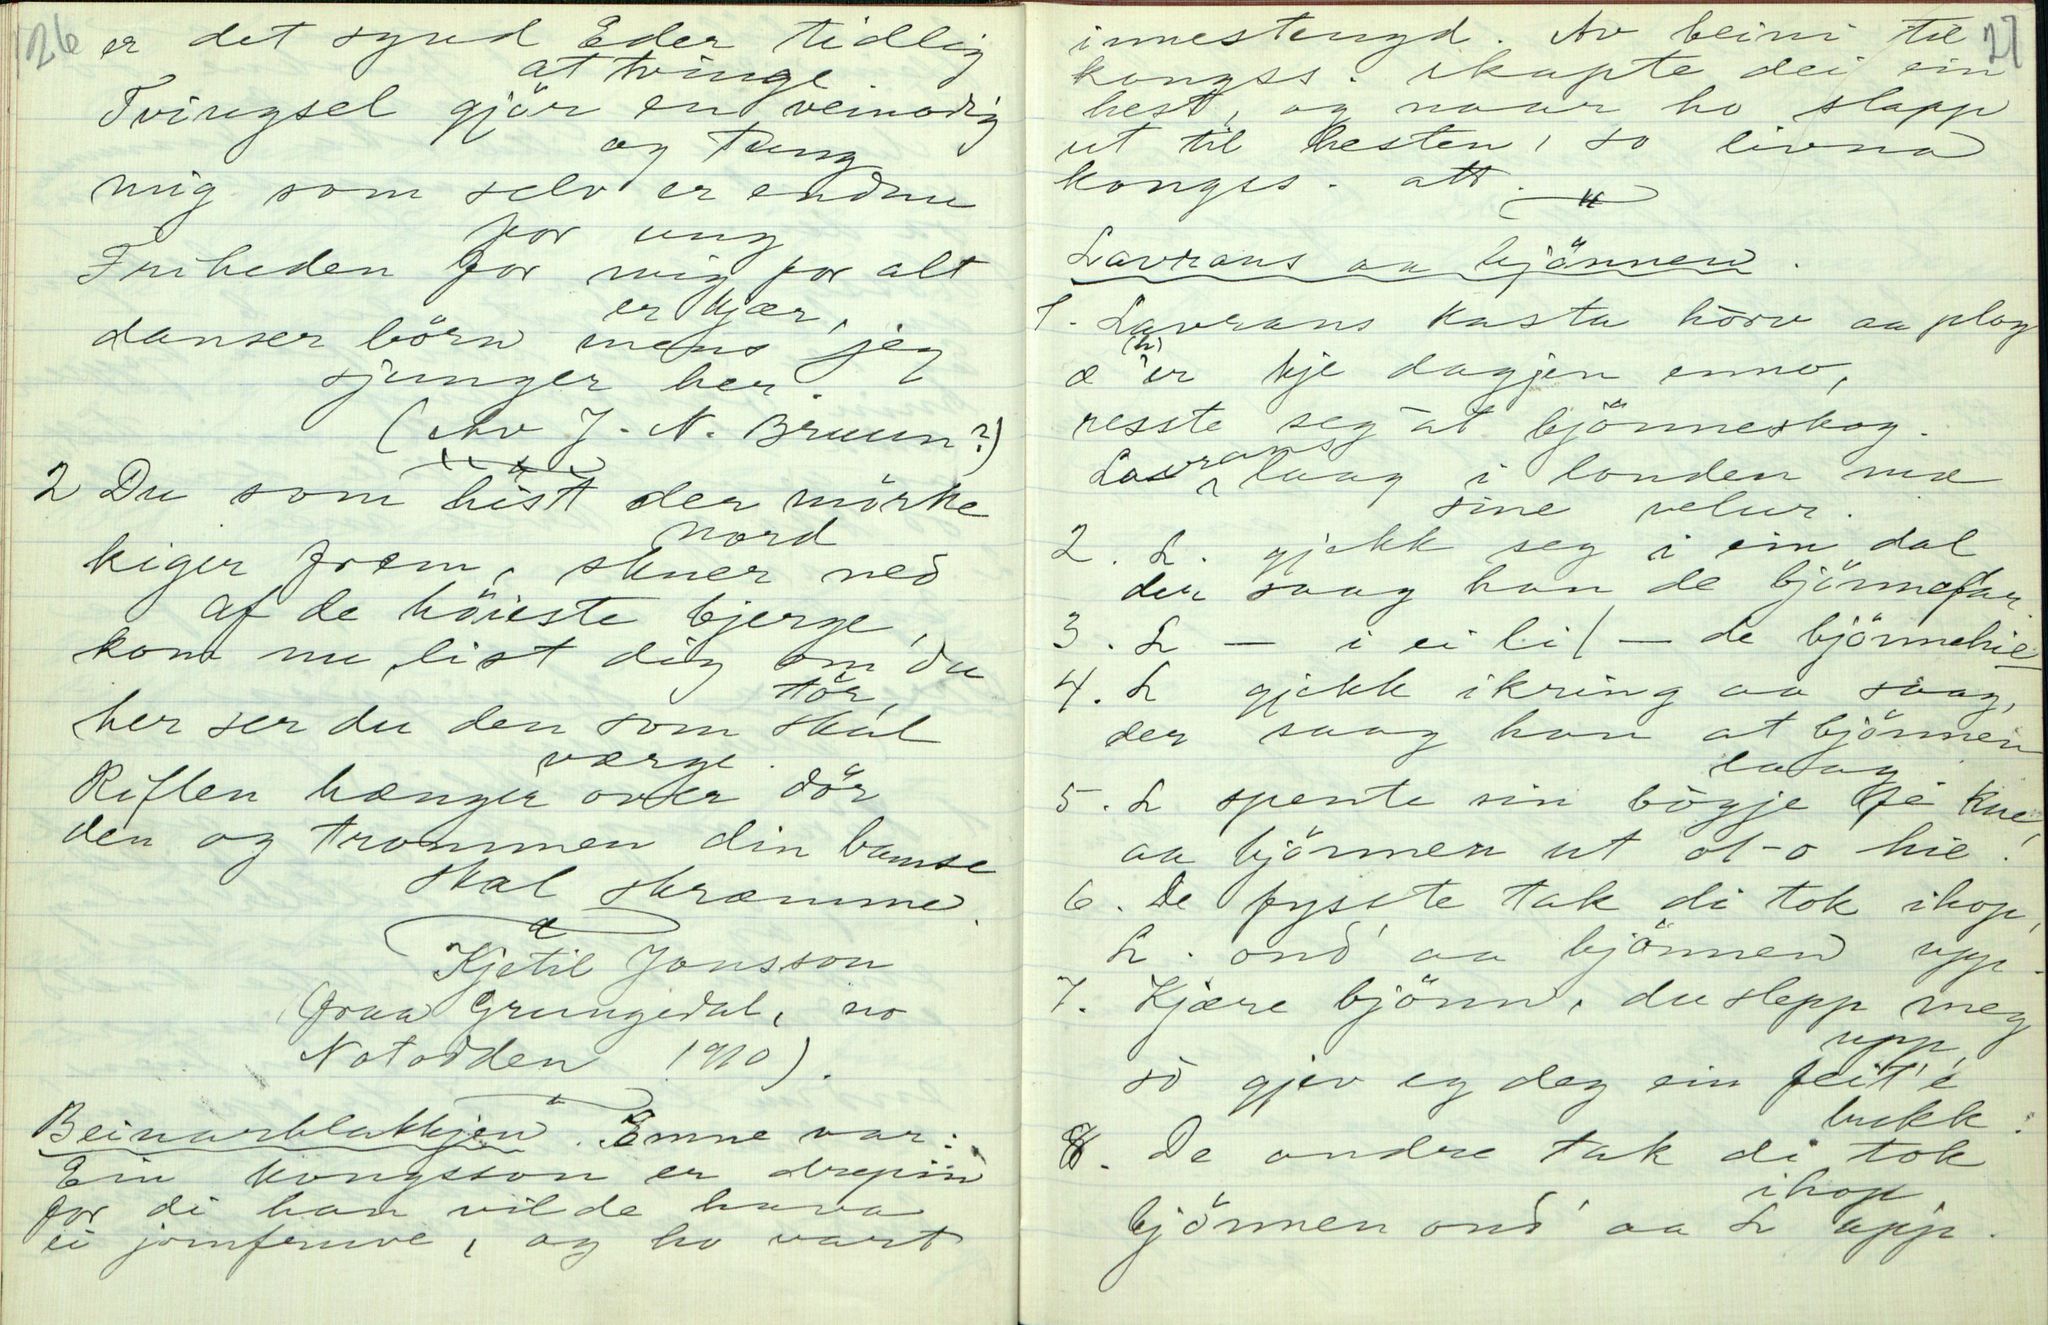 126
er det synd Eder tidlig
at tvinge
Tvingsel gjör en veinodig
og tung
mig som selv er endnu
for ung
Friheden for mig for alt
er kjær,
danser börn mens jeg
sjunger her.
(Av J. N. Bruun?)
2 Du som hist der mörke
nord
kiger frem, skuer ned
af de höieste bjerge,
kom nu, list dig om du
tör,
her ser du den som skal
værge.
Riflen hænger over dör
den og trommen din bamse
skal skræmme.
Kjetil Jonsson
(fraa Grungedal, no
Notodden 1910).
Beinarblakkjen. Emne var:
Ein kongsson er drepin
for di han vilde hava
ei jomfruve, og ho vart
27
innestengd. Av beini til
kongss. skapte dei ein
hest, og naar ho slapp
ut til hesten, so livna
kongss. att.
Lavrans aa bjönnen.
1. Lavrans kasta hörv aa plog
(h)
æ er kje dagjen enno,
resste seg åt bjönneskog.
Lavrans laag i londen mæ
sine velur.
2. L. gjekk seg i ein dal
der saag han de bjönnefar.
3. L – i ei li / – de bjönnehie
4. L gjekk ikring aa saag,
der saag han at bjönnen
laag
5. L spente sin bögje fé kne,
aa bjönnen ut ot-o hie.
6. De fysste tak di tok ihop,
L. ond' aa bjönnen upp.
7. Kjære bjönn, du slepp meg
upp,
så gjev eg deg ein feit'e
bukk.
8. De andre tak di tok
ihop,
bjönnen ond' aa L upp.